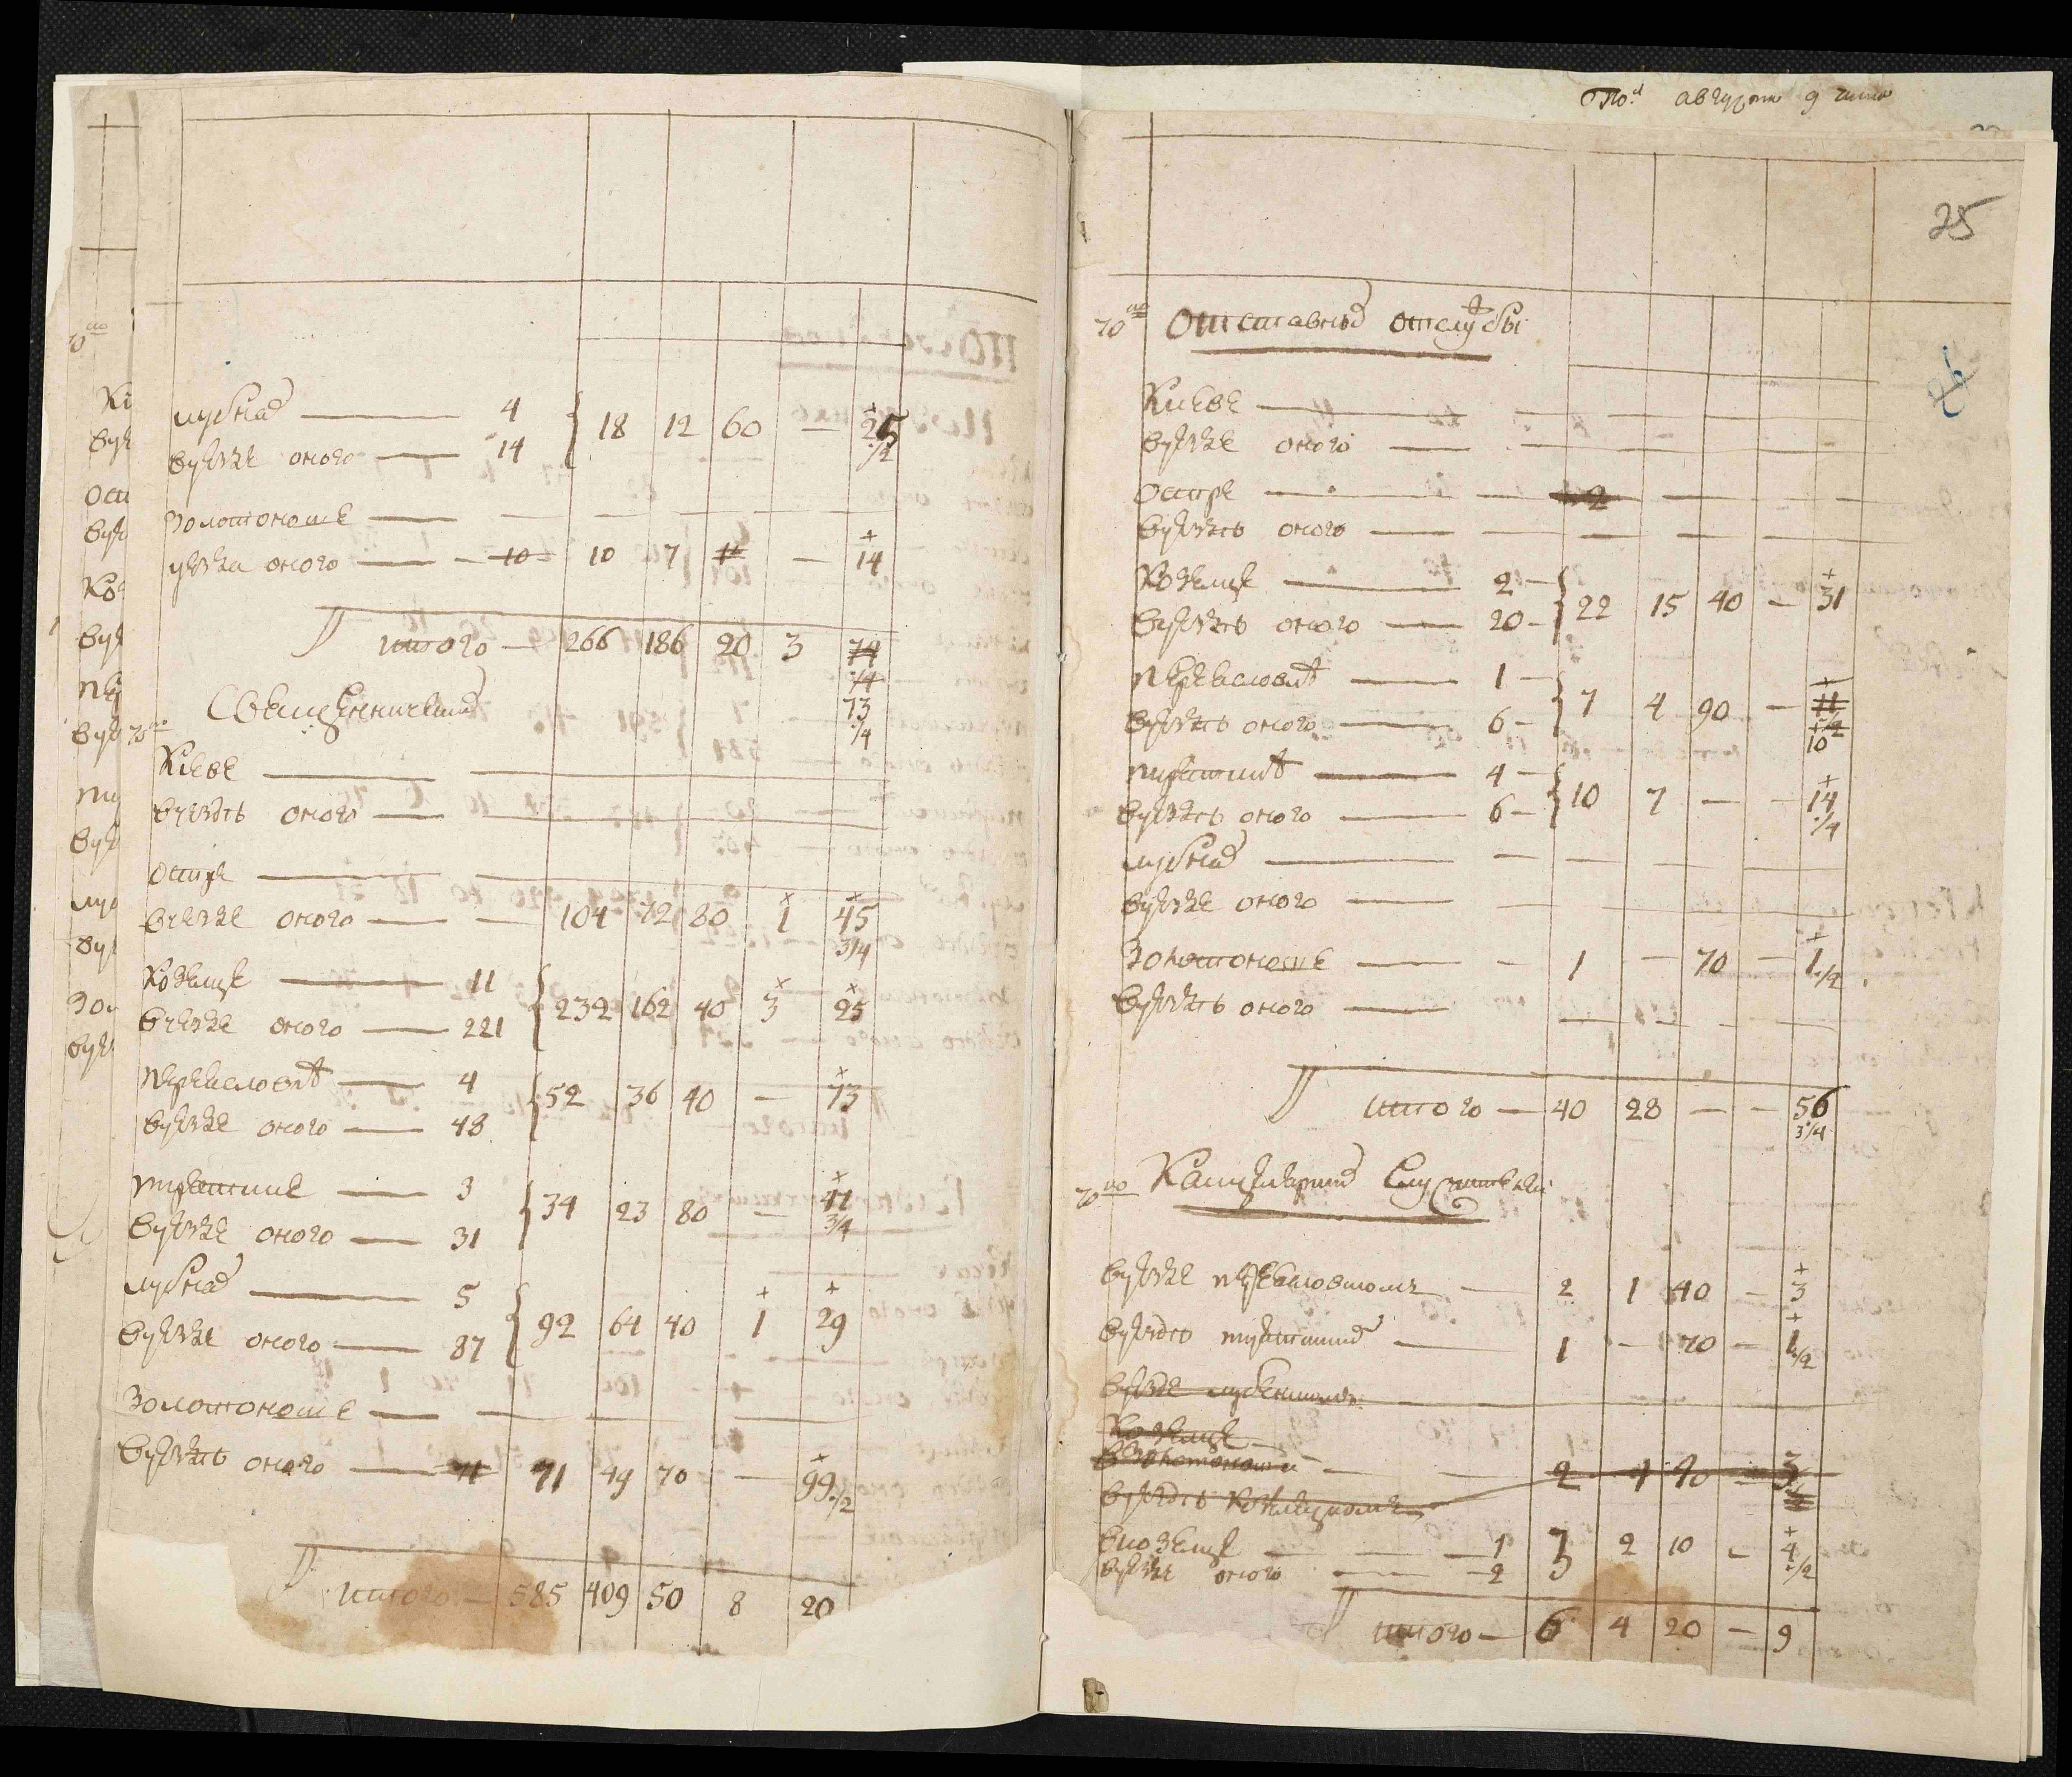 лубнах — 4 } 18 12 60 — 25 1/2
вуезде оного — 14
золотоноше — — — — —
уезда оного — 10 10 7 — 14
итого — 266 186 20 3 74 1/4
73 1/4
70 ко
Священнических
Киеве —
вуездѣ оного —
остре —
вуезде оного — — 104 72 80 1 45 3/4
козелце — 11 } 232 162 40 3 25
вуезде оного — 221
переяславлѣ — 4 } 52 36 40 — 73
вуезде оного — 48
пирятине — 3 } 34 23 80 — 47 3/4
вуезде оного — 31
лубнах — 5 } 92 64 40 1 29
вуезде оного — 87
Золотоноше — — — — —
вуездѣ оного — 71 71 49 70 — 99 1/2
итого — 585 409 50 8 20
августа 9 числа
25
70 ко отставных отслужбы
Киеве — — — — —
вуезде оного — — — — —
остре — — 2 — — — —
вуездѣ оного — — — — —
Козелце — 2 } 22 15 40 — 31
вуездѣ оного — 20
переяславлѣ — 1 } 7 4 90 — 11 1/2
вуездѣ оного — 6
10
пирятинѣ — 4 } 10 7 — — 14 1/4
вуездѣ оного — 6
лубнах — — — — —
вуезде оного — —
Золотоноше — — 1 — 70 — 1 1/2
вуездѣ оного — — — — —
итого — 40 28 — — 56 3/4
70 ко Канцелярских служителей
вуезде переясловском — 2 1 40 — 3
вуездѣ пирятинском — 1 — 70 — 1 1/2
вуезде лубенском
Козелце
взолотоноши — — 2 1 40 — 3
вуездѣ козелецком
вкозелце — — 1 3 2 10 — 4 1/2
вуезде оного — 2
итого — 6 4 20 — 9